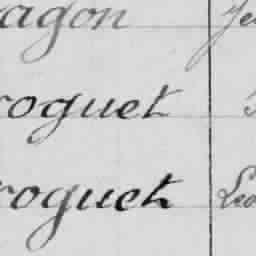 agon Je
roquet
roquet Leo